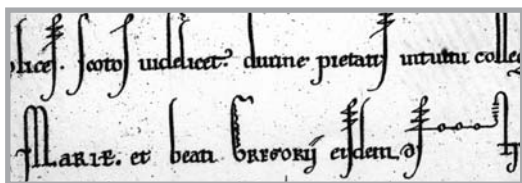 plices. scotos uidelicet. diuine pietatis intuitu colle
MARIE. et beati GREGORII eisdem